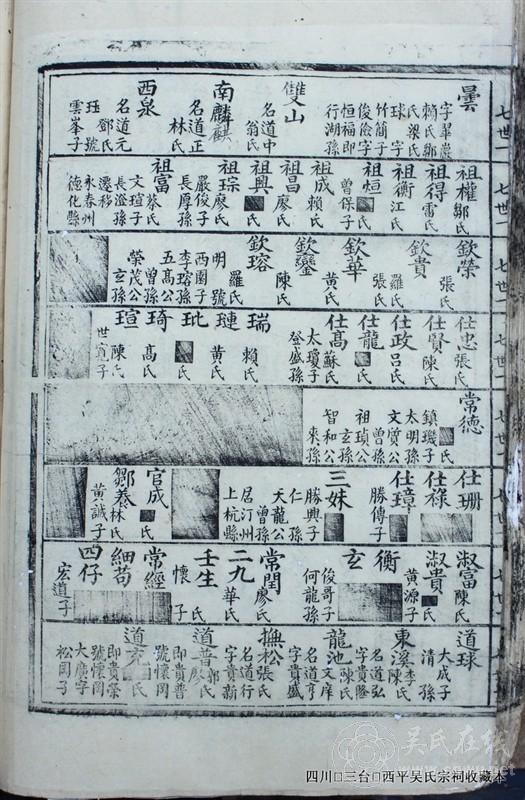 七世一
七世一
七世一
七世一
七世一
曇
字華嵒
賴氏鄒
氏梁氏
球字
竹簡子
俊儉字
恒福即
行湖孫
雙山
名道中
翁氏
南麟麒
名道正
林氏
西泉
名道元
鄧氏
珏號
雲峯子
祖權鄒氏
祖得雷氏
祖衡江氏
祖恒氏
曾保子
祖成賴氏
祖昌廖氏
祖興氏
祖琮廖氏
嚴俊子
長厚孫
祖富蔡氏
文瑄子
長澄孫
遷移
永春州
德化縣
欽榮張氏
欽貴羅氏
張氏
欽華黃氏
欽鑾陳氏
欽瑢羅氏
明號
西園子
李瑢孫
五髙公
曾孫
榮茂公
玄孫
仕忠張氏
仕賢陳氏
仕政呂氏
仕龍氏
仕髙蘇氏
太瓊子
登盛孫
瑞賴氏
璉黃氏
玭氏
琦髙氏
瑄陳氏
世寬子
常德
氏
鎮璣子
太明孫
文質公
曾孫
祖瑱公
玄孫
智和公
來孫
仕珊
仕祿
仕璋
勝傳子
三妹
勝興子
仁孫
天龍公
曾孫
居汀州
上杭縣
官成氏
鄒養林氏
黃誠子
淑富陳氏
淑貴氏
黃源子
衡
玄
俊哥子
何龍孫
常閏廖氏
二九華氏
壬生氏
懷子
常經
細苟
四仔
宏道子
道球
大成子
清孫
東溪李氏
陳氏
名道弘
字貴隆
龍池陳氏
文庠
名道亨
字貴盛
撫松張氏
名道行
字貴新
道普郭氏
廖氏
即貴普
號懷岡
道充氏
即貴榮
號懷岡
大廣字
松岡子
吴氏在线
四川 三台 西平吴氏宗祠收藏本